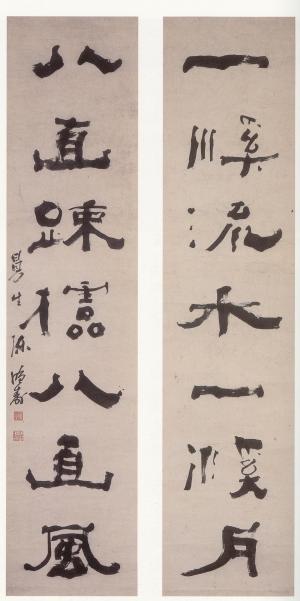 一溪流水一溪月
八面疎櫺八面風
曼生陳鴻壽